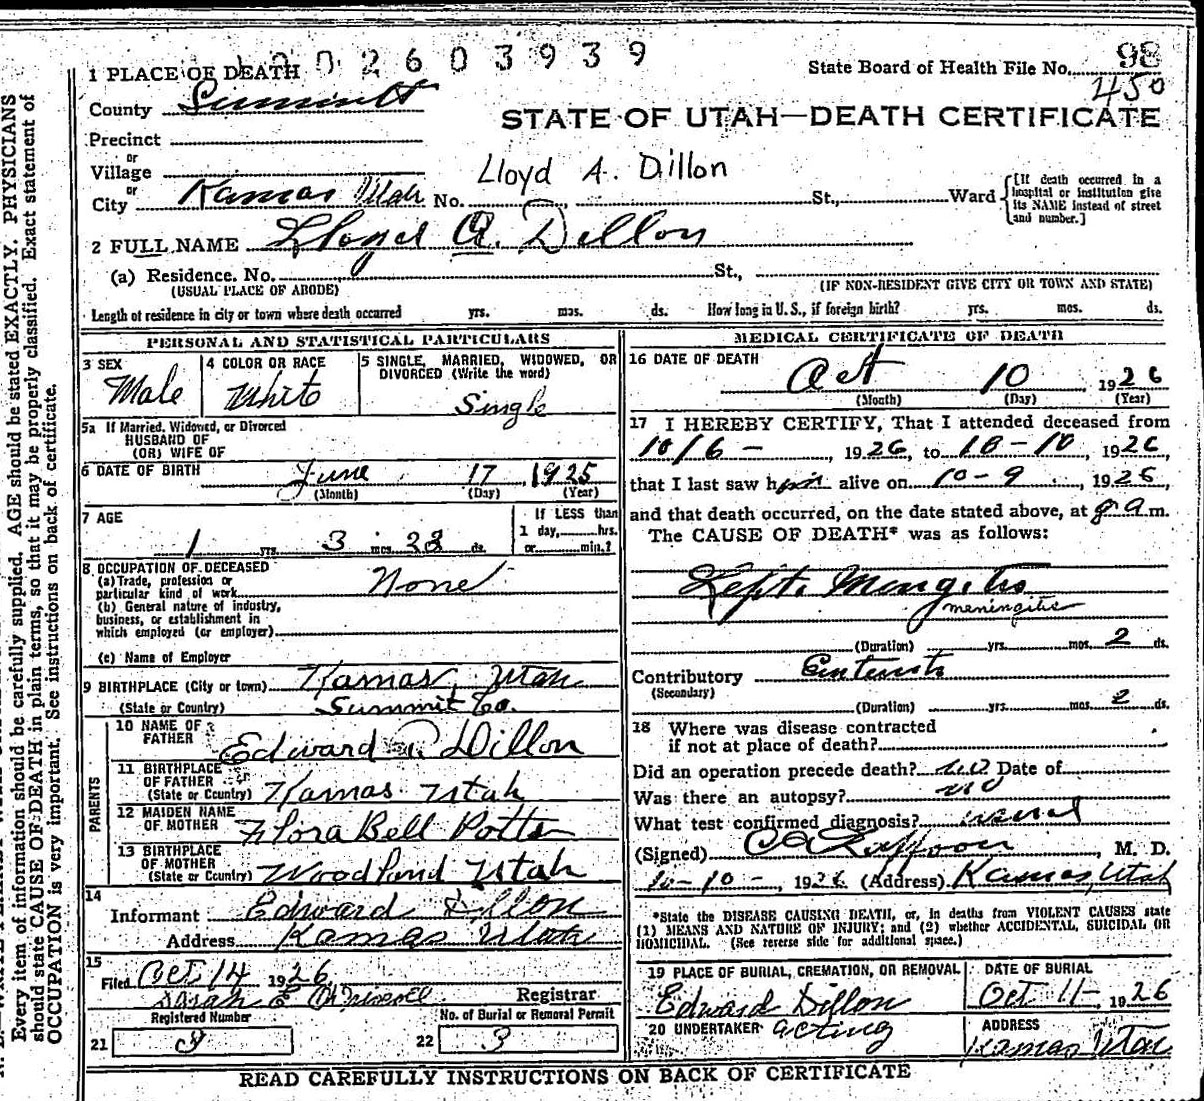 2603939
98
State Board of Health File No.
450
1 PLACE OF DEATH
County Summitt
STATE OF UTAH—DEATH CERTIFICATE
Precinct
or
Village
Lloyd A. Dillon
or
City Kamas Utah No. St., Ward
[If death occurred in a hospital or institution give its NAME instead of street and number.]
2 FULL NAME Lloyd A. Dillon
(a) Residence. No. St.,
(USUAL PLACE OF ABODE) (IF NON-RESIDENT GIVE CITY OR TOWN AND STATE)
Length of residence in city or town where death occurred yrs. mos. ds. How long in U. S., if foreign birth? yrs. mos. ds.
PERSONAL AND STATISTICAL PARTICULARS
3 SEX
Male
4 COLOR OR RACE
White
5 SINGLE, MARRIED, WIDOWED, OR
DIVORCED (Write the word)
Single
5a If Married, Widowed, or Divorced
HUSBAND OF
(OR) WIFE OF
6 DATE OF BIRTH June 17, 1925
(Month) (Day) (Year)
7 AGE
1 yrs. 3 mos. 23 ds.
If LESS than
1 day, hrs.
or min.?
8 OCCUPATION OF DECEASED
(a) Trade, profession or
particular kind of work None
(b) General nature of industry,
business, or establishment in
which employed (or employer)
(c) Name of Employer
9 BIRTHPLACE (City or town) Kamas, Utah
(State or Country) Summit Co.
PARENTS
10 NAME OF
FATHER Edward Dillon
11 BIRTHPLACE
OF FATHER
(State or Country) Kamas Utah
12 MAIDEN NAME
OF MOTHER Flora Bell Potts
13 BIRTHPLACE
OF MOTHER
(State or Country) Woodland Utah
14
Informant Edward Dillon
Address Kamas Utah
15
Filed Oct 14 1926
Sarah Registrar
Registered Number No. of Burial or Removal Permit
21 22 3
MEDICAL CERTIFICATE OF DEATH
16 DATE OF DEATH
Oct 10 1926
(Month) (Day) (Year)
17 I HEREBY CERTIFY, That I attended deceased from
10/6 - , 1926, to 10-10, 1926,
that I last saw him alive on 10-9, 1926,
and that death occurred, on the date stated above, at 8 a m.
The CAUSE OF DEATH* was as follows:
Lept. Mengitis
meningitis
(Duration) yrs. mos. 2 ds.
Contributory
(Secondary)
(Duration) yrs. mos. 2 ds.
18 Where was disease contracted
if not at place of death?
Did an operation precede death? no Date of
Was there an autopsy? no
What test confirmed diagnosis?
(Signed) , M. D.
10-10-, 1926 (Address) Kamas, Utah
*State the DISEASE CAUSING DEATH, or, in deaths from VIOLENT CAUSES state
(1) MEANS AND NATURE OF INJURY; and (2) whether ACCIDENTAL, SUICIDAL OR
HOMICIDAL. (See reverse side for additional space.)
19 PLACE OF BURIAL, CREMATION, OR REMOVAL
Edward Dillon
DATE OF BURIAL
Oct 11-, 1926
20 UNDERTAKER acting
ADDRESS
Kamas Utah
READ CAREFULLY INSTRUCTIONS ON BACK OF CERTIFICATE
Every item of information should be carefully supplied. AGE should be stated EXACTLY. PHYSICIANS
should state CAUSE OF DEATH in plain terms, so that it may be properly classified. Exact statement of
OCCUPATION is very important. See instructions on back of certificate.